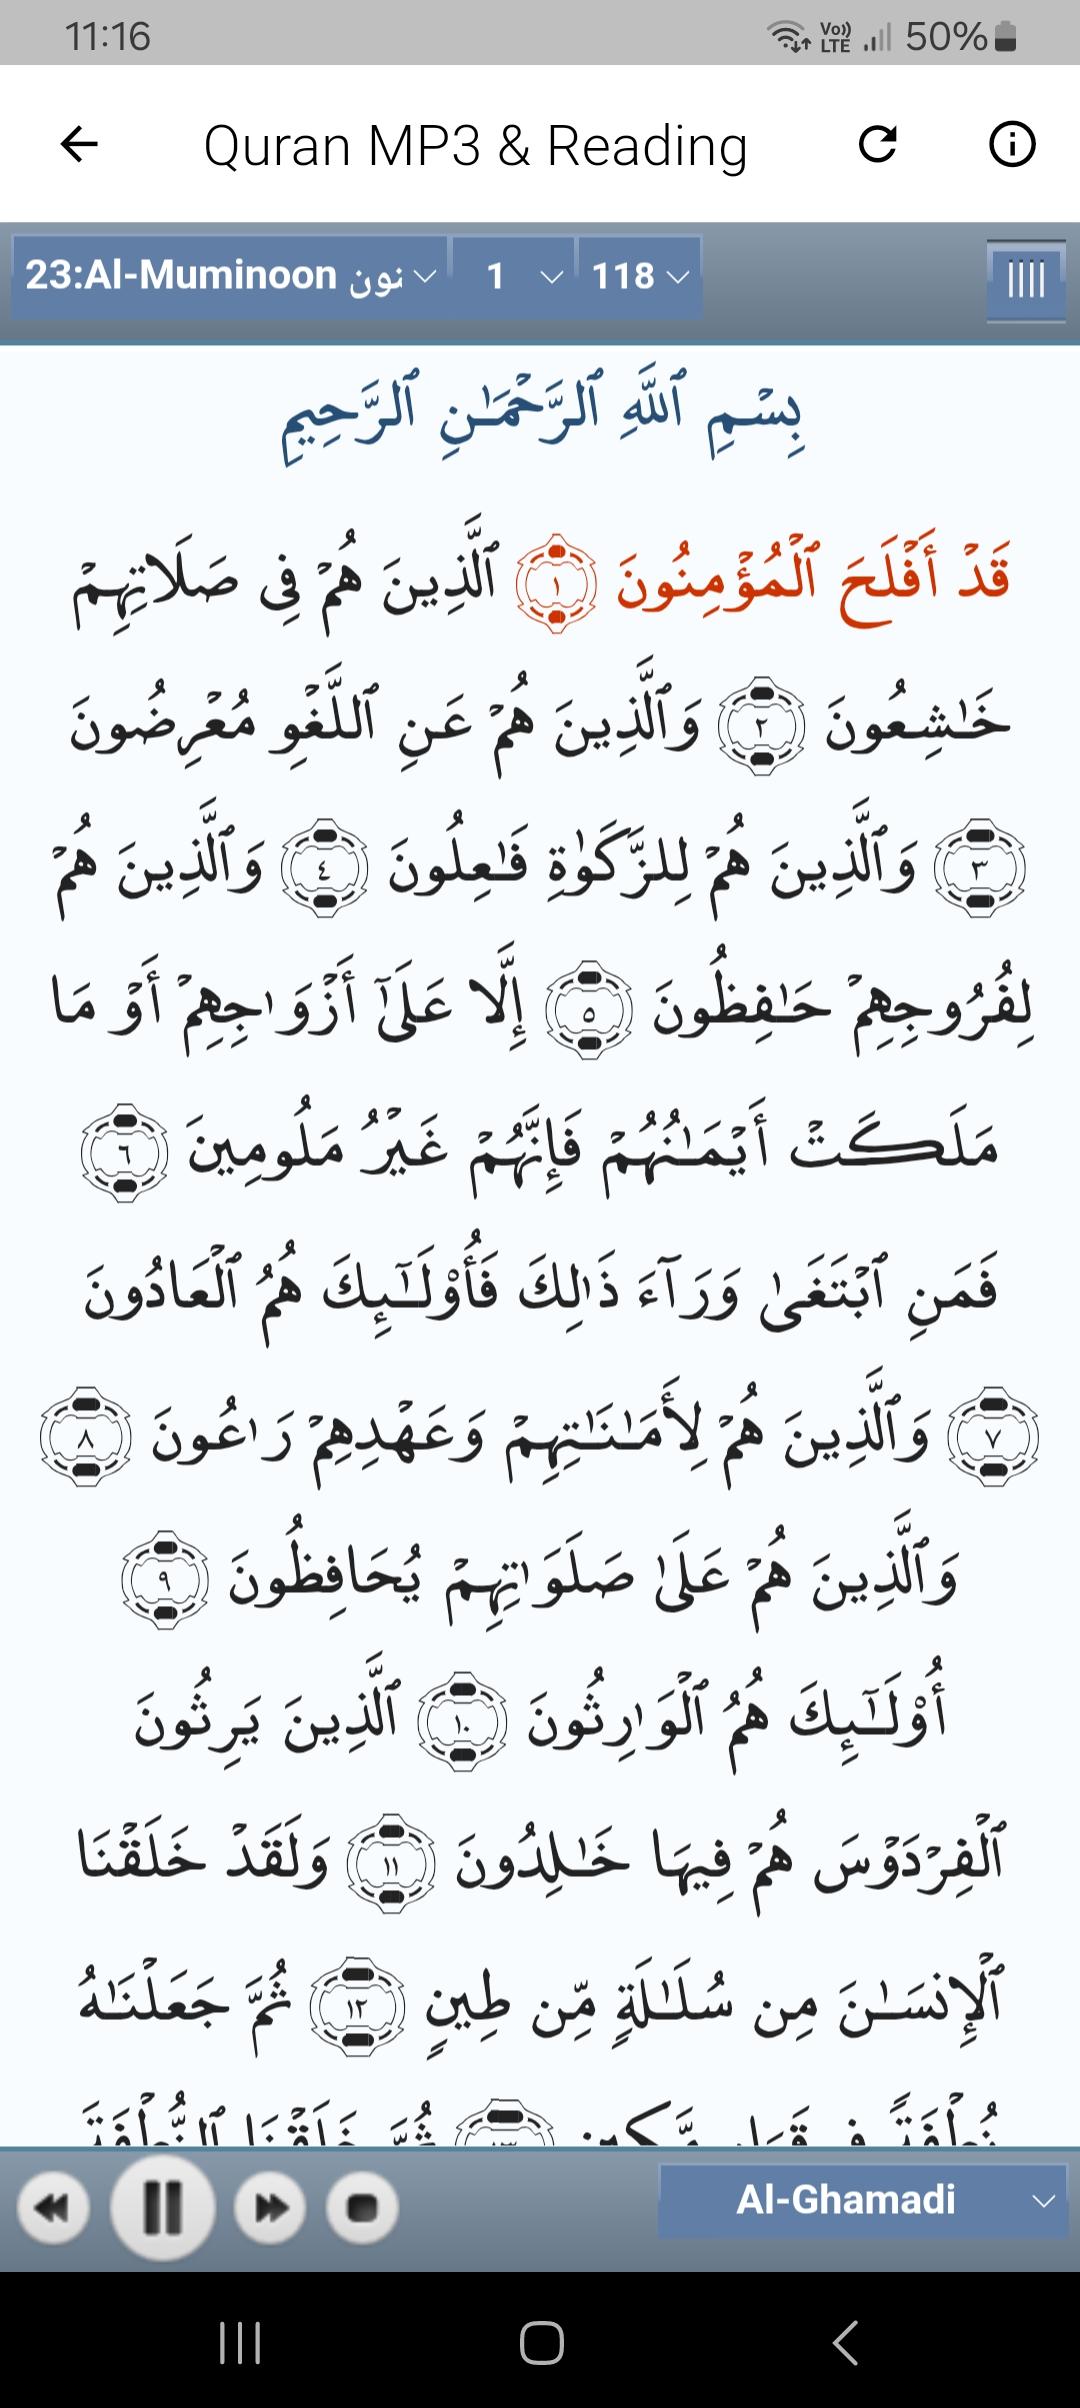 11:16
Vo)) LTE 50%
Quran MP3 & Reading
23:Al-Muminoon نون 1 118
بِسْمِ ٱللَّهِ ٱلرَّحْمَـٰنِ ٱلرَّحِيمِ
قَدْ أَفْلَحَ ٱلْمُؤْمِنُونَ ١ ٱلَّذِينَ هُمْ فِى صَلَاتِهِمْ
خَـٰشِعُونَ ٢ وَٱلَّذِينَ هُمْ عَنِ ٱللَّغْوِ مُعْرِضُونَ
٣ وَٱلَّذِينَ هُمْ لِلزَّكَوٰةِ فَـٰعِلُونَ ٤ وَٱلَّذِينَ هُمْ
لِفُرُوجِهِمْ حَـٰفِظُونَ ٥ إِلَّا عَلَىٰٓ أَزْوَٰجِهِمْ أَوْ مَا
مَلَكَتْ أَيْمَـٰنُهُمْ فَإِنَّهُمْ غَيْرُ مَلُومِينَ ٦
فَمَنِ ٱبْتَغَىٰ وَرَآءَ ذَٰلِكَ فَأُو۟لَـٰٓئِكَ هُمُ ٱلْعَادُونَ
٧ وَٱلَّذِينَ هُمْ لِأَمَـٰنَـٰتِهِمْ وَعَهْدِهِمْ رَٰعُونَ ٨
وَٱلَّذِينَ هُمْ عَلَىٰ صَلَوَٰتِهِمْ يُحَافِظُونَ ٩
أُو۟لَـٰٓئِكَ هُمُ ٱلْوَٰرِثُونَ ١٠ ٱلَّذِينَ يَرِثُونَ
ٱلْفِرْدَوْسَ هُمْ فِيهَا خَـٰلِدُونَ ١١ وَلَقَدْ خَلَقْنَا
ٱلْإِنسَـٰنَ مِن سُلَـٰلَةٍ مِّن طِينٍ ١٢ ثُمَّ جَعَلْنَـٰهُ
نُطْفَةً فِى قَرَارٍ مَّكِينٍ ١٣ ثُمَّ خَلَقْنَا ٱلنُّطْفَةَ
Al-Ghamadi